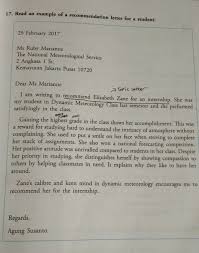 17. Read an example of a recommendation letter for a student!
26 February 2017
Ms Ruby Marianne
The National Meteorological Service
2 Angkasa 1 St.
Kemayoran Jakarta Pusat 10720
Dear Ms Marianne
I am writing to recommend Elizabeth Zane for an internship. She was
my student in Dynamic Meteorology Class last semester and she performed
satisfyingly in the class.
Gaining the highest grade in the class shows her accomplishment. This was
a reward for studying hard to understand the intricacy of atmosphere without
complaining. She used to put a smile on her face when striving to complete
her stack of assignments. She also won a national forecasting competition.
Her positive attitude was unrivalled compared to students in her class. Despite
her priority in studying, she distinguishes herself by showing compassion to
others by helping classmates in need. It explains why they like to have her
around.
Zane's calibre and keen mind in dynamic meteorology encourages me to
recommend her for the internship.
Regards,
Agung Susanto